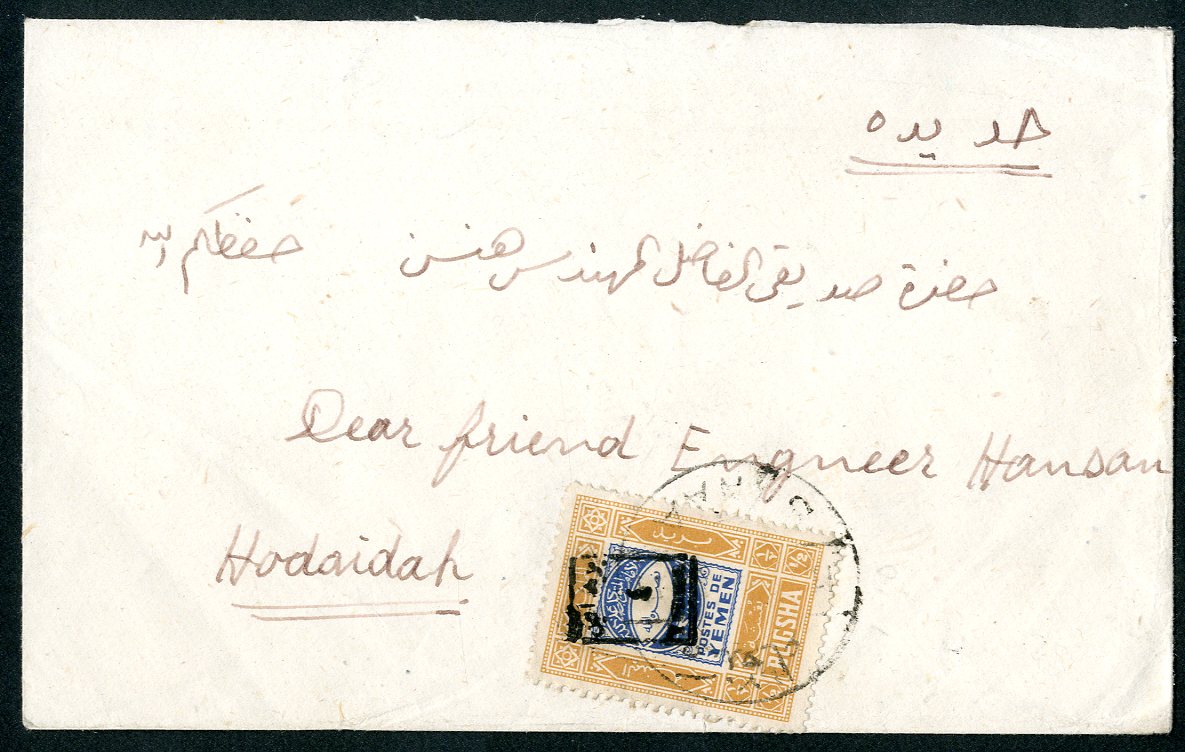 حديده
حضرة صديقي الفاضل المهندس هنسن حفظكم الله
Dear friend Engneer Hansan
Hodaidah
SANAA
بريد
½ ½
POSTES DE
YEMEN
BUGSHA